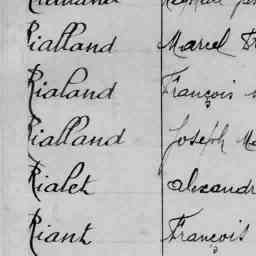 Rialland Marcel
Rialand François
Rialland Joseph
Rialet Alexandr
Riant François